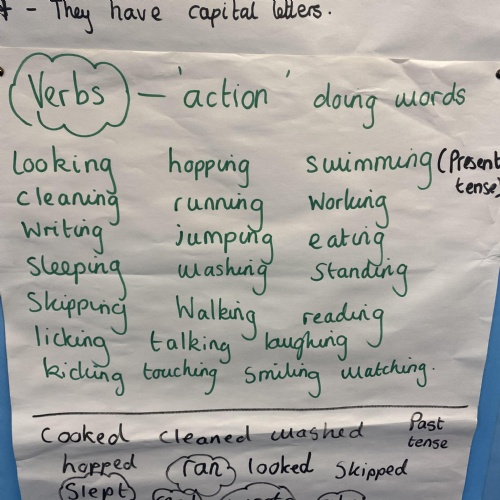 - They have capital letters.
Verbs - 'action' doing words
looking hopping swimming (Present tense)
cleaning running working
writing jumping eating
Sleeping washing standing
Skipping Walking reading
licking talking laughing
kicking touching smiling watching.
Cooked cleaned washed Past tense
hopped ran looked skipped
Slept